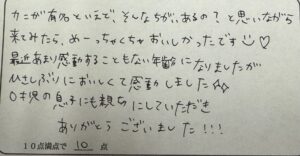 カニが有名といえど、そんなちがいあるの？と思いながら
来てみたら、めーっちゃくちゃおいしかったです☺♡
最近あまり感動することもない年齢になりましたが
ひさしぶりにおいしくて感動しました☆☆
0才児の息子にも親切にしていただき
ありがとうございました!!!
10点満点で 10 点